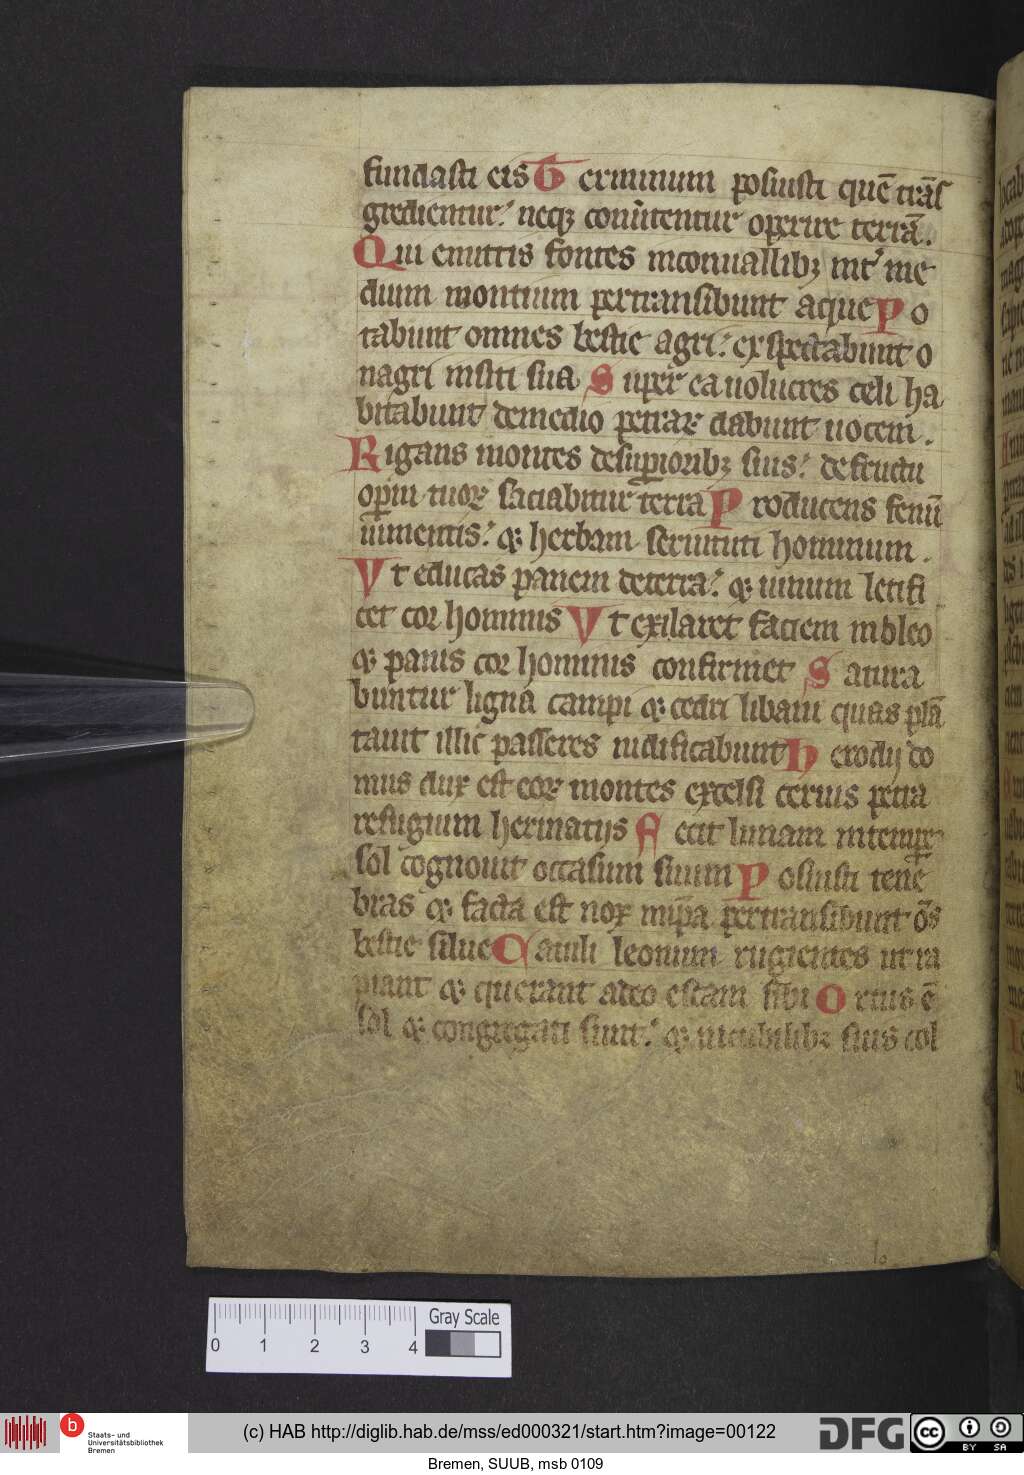 fundasti eis Terminum posuisti quē trās
gredientur: neqꝫ conu̅tentur operire terrā.
Qui emittis fontes inconuallibꝫ int͛ me
dium montium pertransibunt aque Po
tabunt omnes bestie agri: exspectabunt o
nagri insiti sua Super ea uolucres celi ha
bitabunt demedio petraꝝ dabunt uocem.
Rigans montes desuꝑioribꝫ suis: defructu
oꝑum tuoꝝ saciabitur terra Producens fenū
iumentis: ⁊ herbam seruituti hominum.
Vt educas panem deterra: ⁊ uinum letifi
cet cor hominis Vt exilaret faciem inoleo
⁊ panis cor hominis confirmet Satura
buntur ligna campi ⁊ cedri libani quas plā
tauit illic passeres nidificabunt Herodij do
mus dux est eoꝝ montes excelsi ceruis petra
refugium herinatijs Fecit lunam intempꝝ
sol cognouit occasum suum Posuisti tene
bras ⁊ facta est nox inip̄a pertransibunt ōs
bestie silue Catuli leonum rugientes ut ra
piant ⁊ querant adeo escam sibi Ortus ē
sol ⁊ congregati sunt: ⁊ incubilibꝫ suis col
lo
0 1 2 3 4
Gray Scale
b
Staats- und
Universitätsbibliothek
Bremen
(c) HAB http://diglib.hab.de/mss/ed000321/start.htm?image=00122
DFG
cc
BY SA
Bremen, SUUB, msb 0109